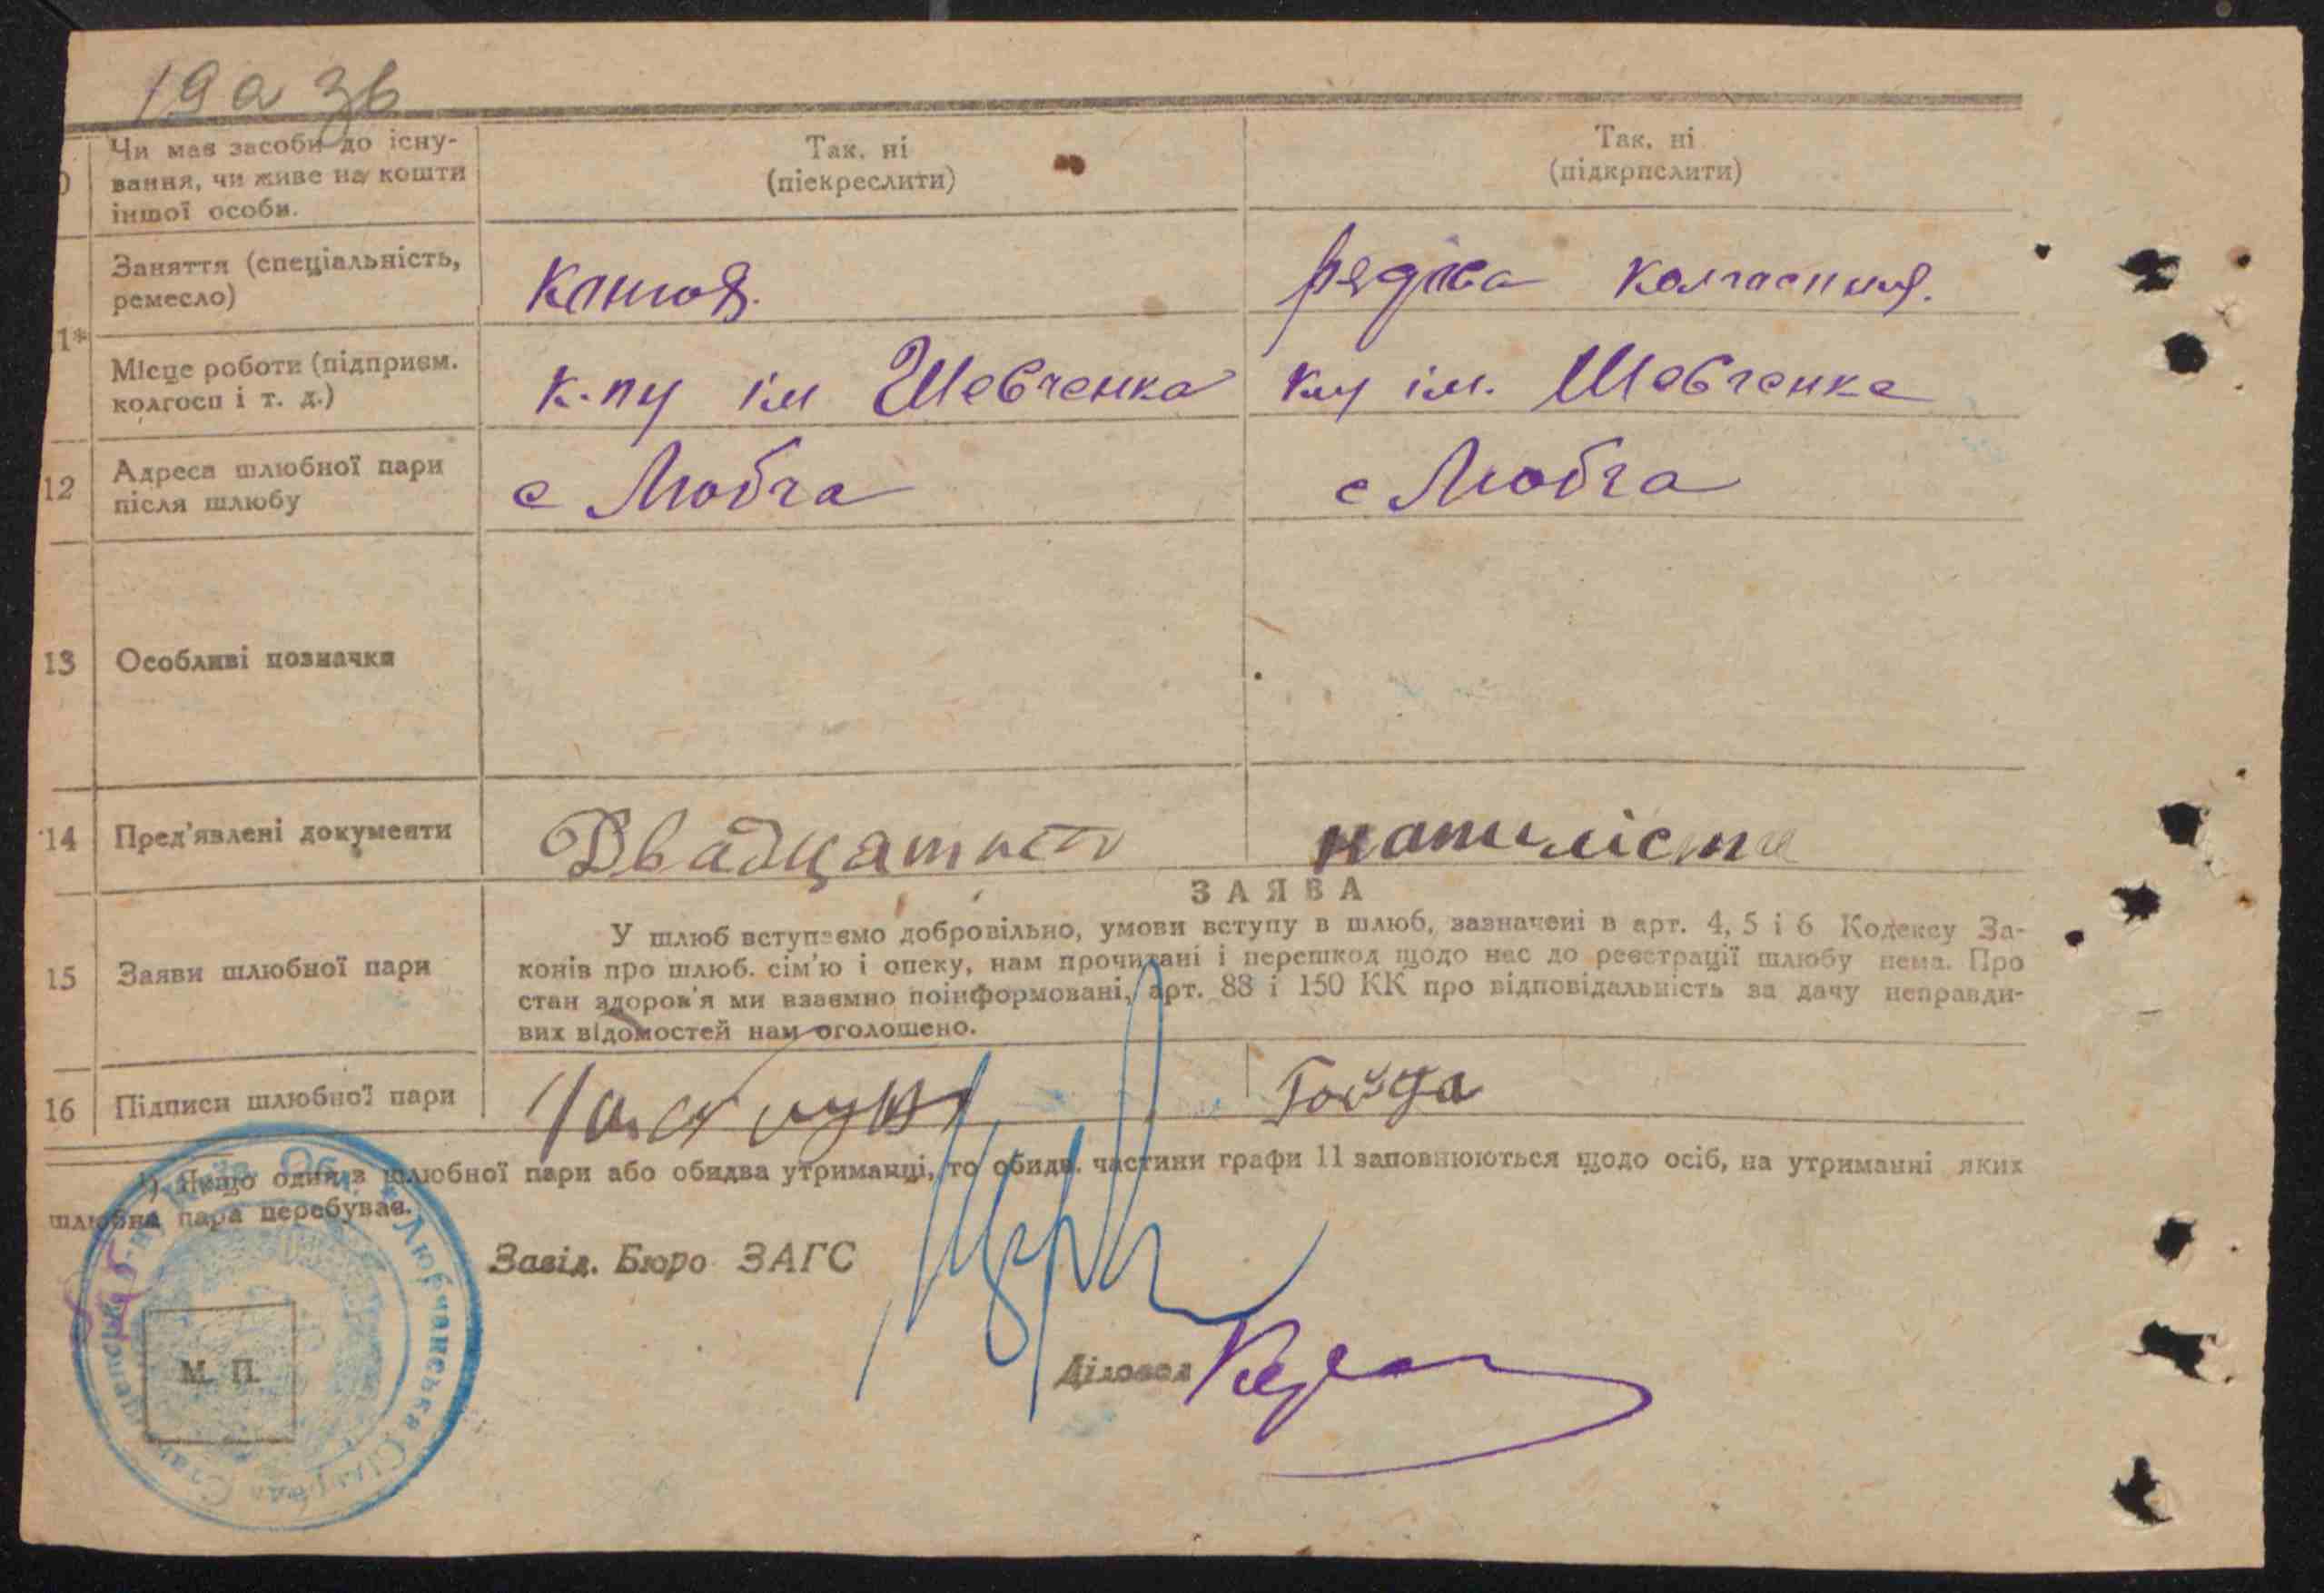 19 а зв
Чи має засоби до існу-
вання, чи живе на кошти
іншої особи.
Так, ні
(піекреслити)
Так, ні
(підкрпслити)
Заняття (спеціальність,
ремесло)
рядова
1*
Місце роботи (підприєм.
колгосп і т. д.)
к-пу ім Шевченка
кпу ім. Шевченка
12
Адреса шлюбної пари
після шлюбу
с Любча
с Любча
13
Особливі позначки
14
Пред'явлені документи
Двадцать
15
Заяви шлюбної пари
ЗАЯВА
У шлюб вступаємо добровільно, умови вступу в шлюб, зазначені в арт. 4, 5 і 6 Кодексу За-
конів про шлюб. сім'ю і опеку, нам прочитані і перешкод щодо нас до реєстрації шлюбу нема. Про
стан здоров'я ми взаємно поінформовані, арт. 88 і 150 КК про відповідальність за дачу неправди-
вих відомостей нам оголошено.
16
Підписи шлюбної пари
Гойда
*) Якщо один з шлюбної пари або обидва утриманці, то обидв. частини графи 11 заповнюються щодо осіб, на утриманні яких
шлюбна пара перебуває.
Завід. Бюро ЗАГС
Діловод
М. П.
Любчанська Сільрада